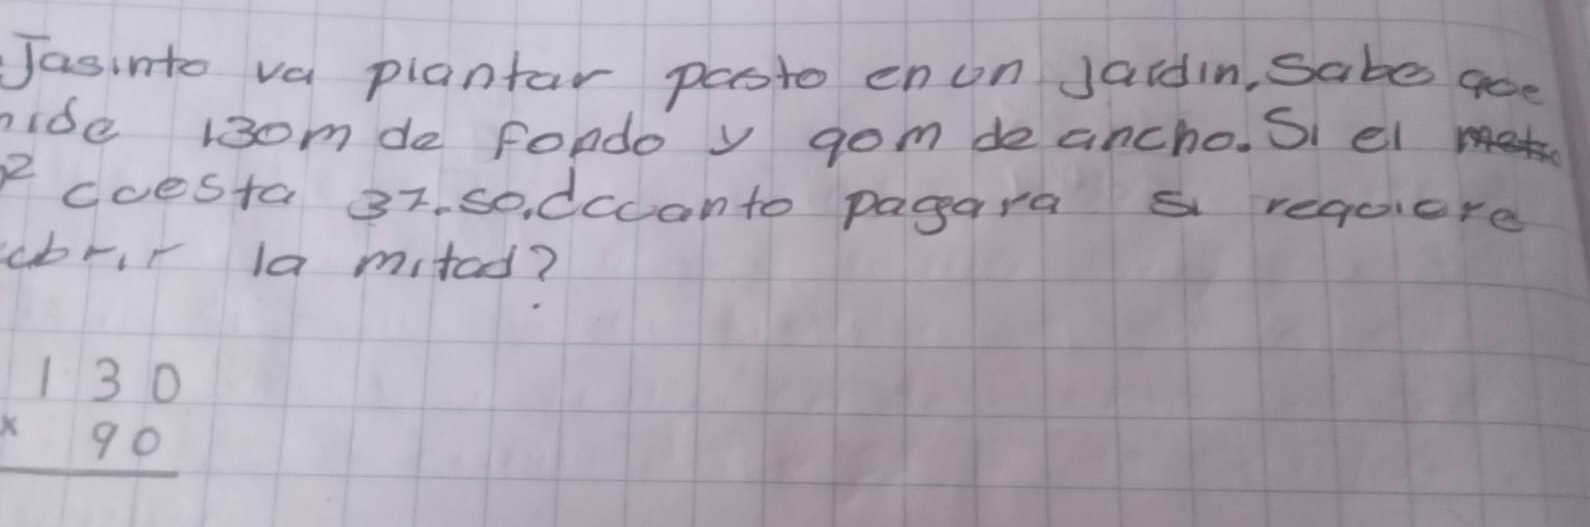 Jasinto va plantar pasto en un Jardin. Sabe que
mide 130m de fondo y 90m de ancho. Si el
² cuesta 37.50. d cuanto pagara si requiere
cubrir la mitad?
130
x 90